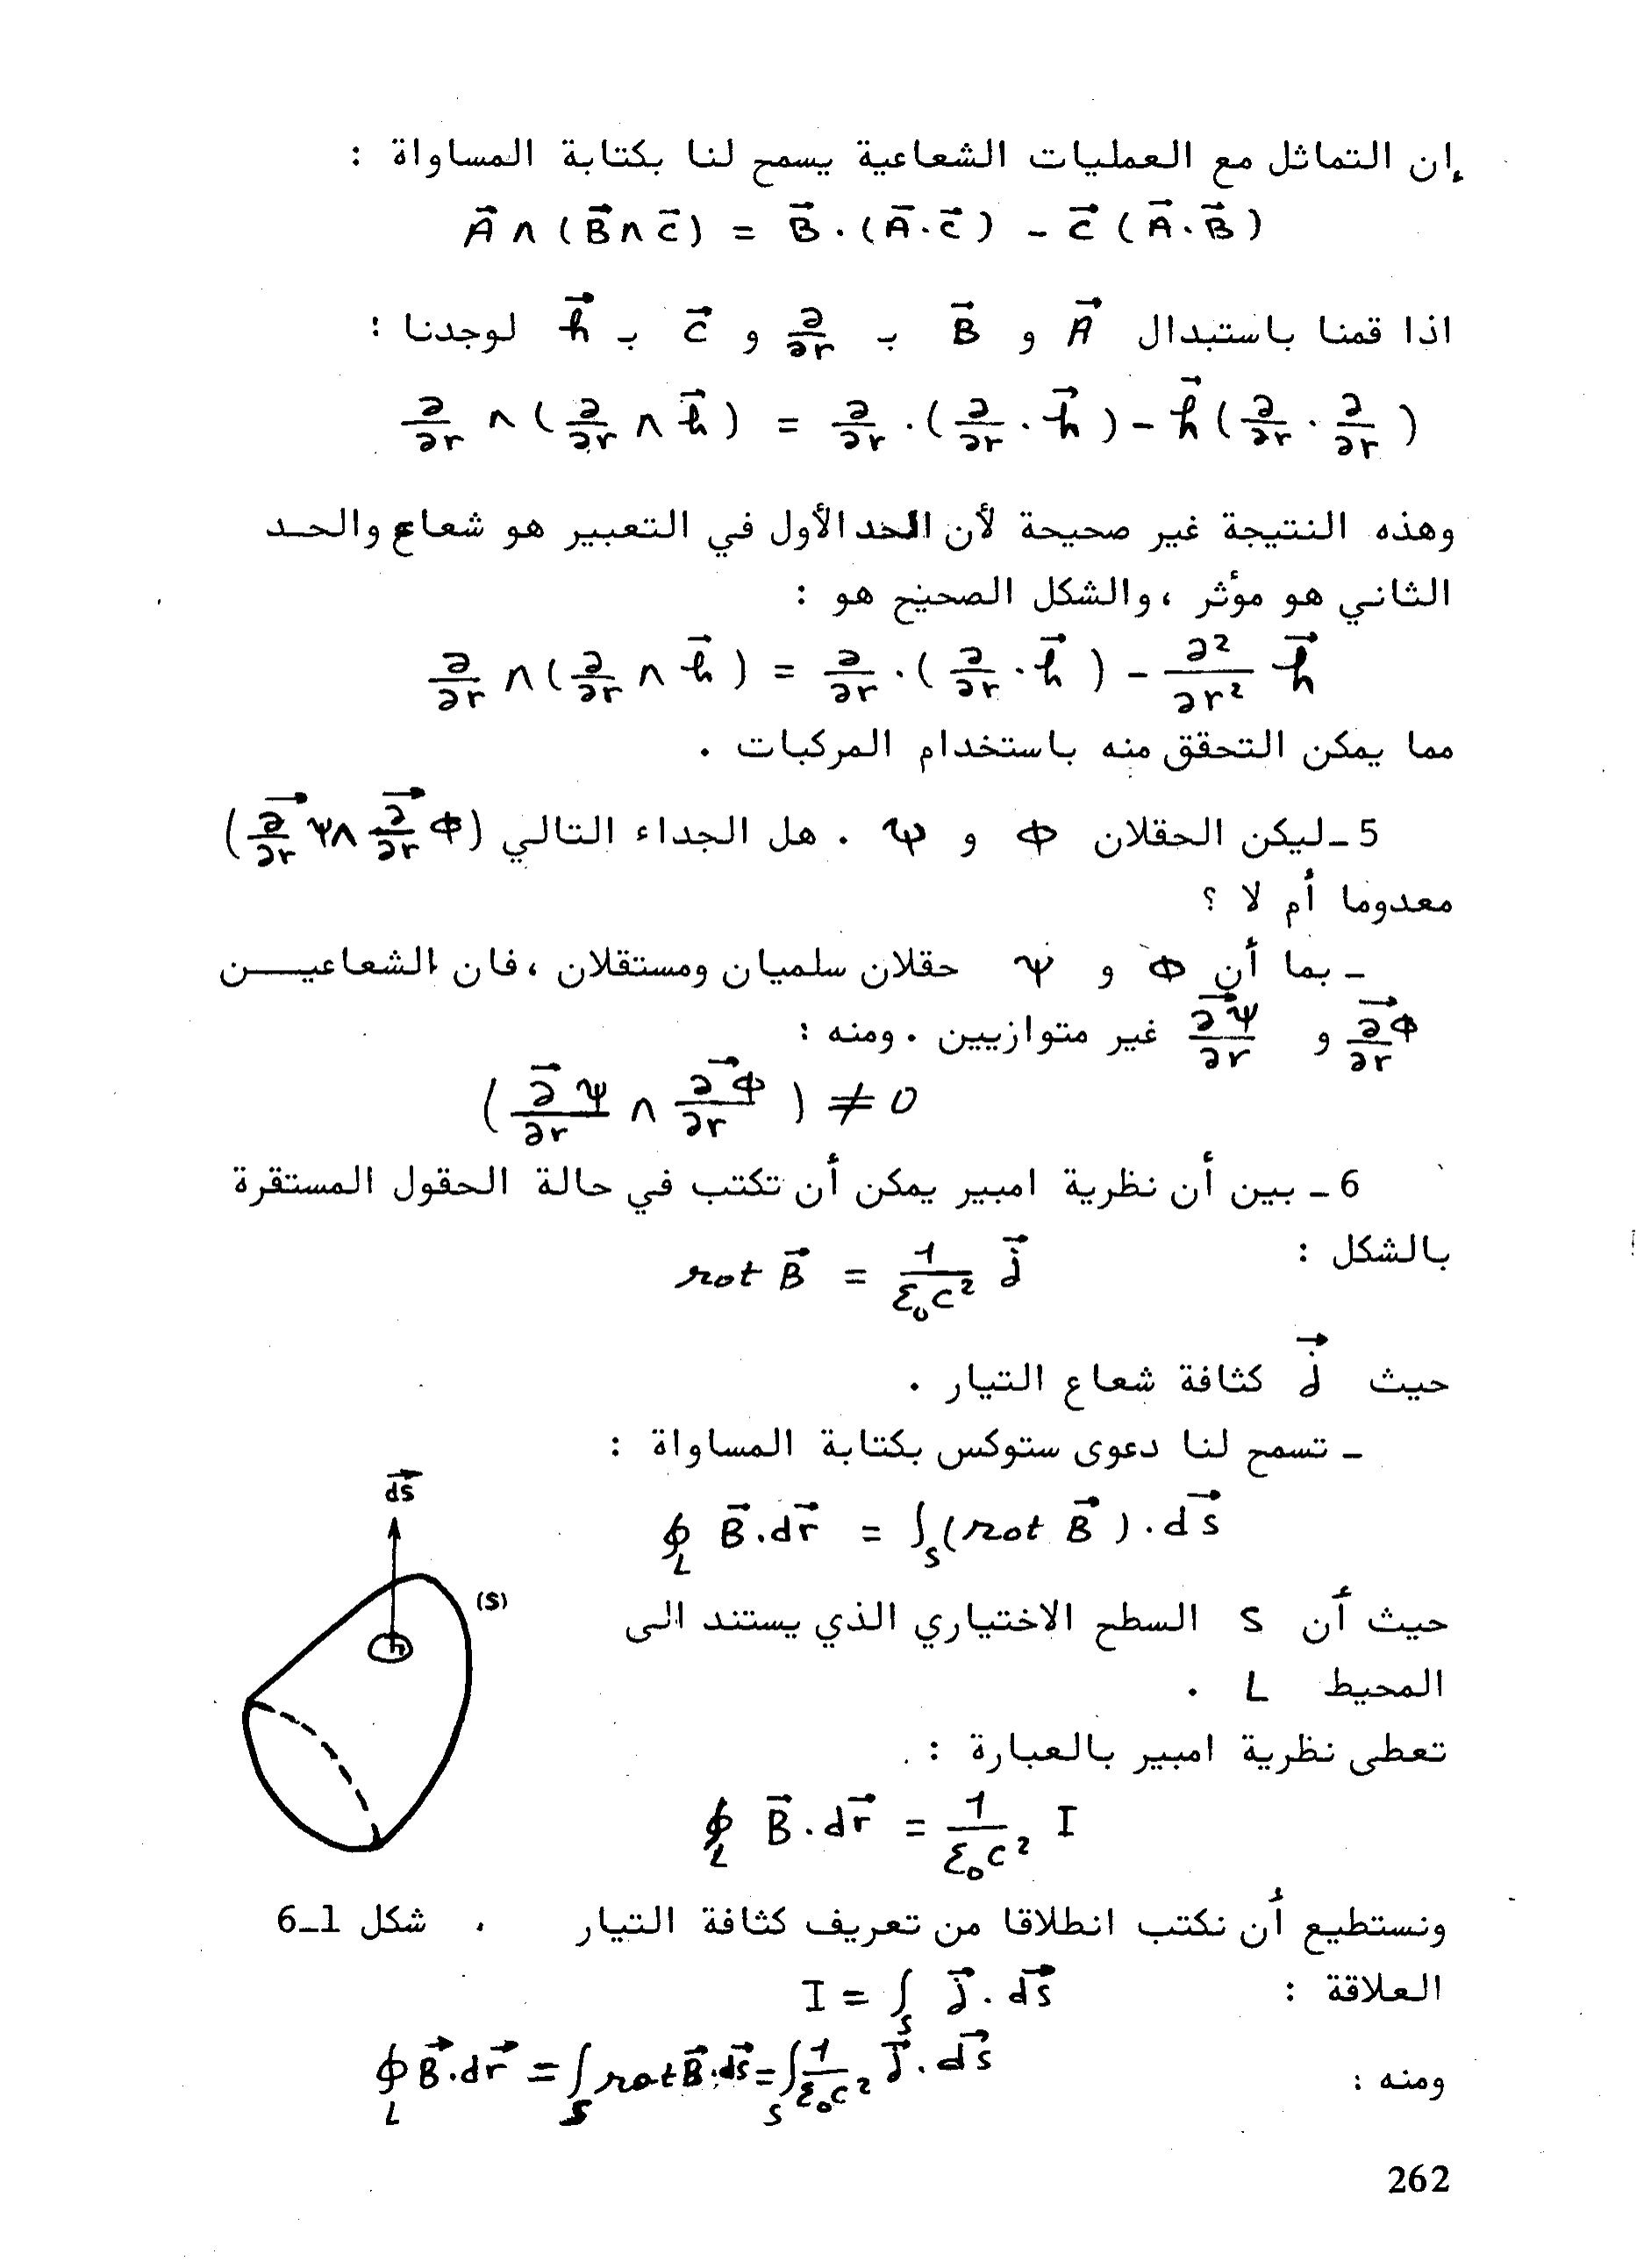 إن التماثل مع العمليات الشعاعية يسمح لنا بكتابة المساواة :
A⃗ ∧ (B⃗ ∧ C⃗) = B⃗ . (A⃗ . C⃗) - C⃗ (A⃗ . B⃗)
اذا قمنا باستبدال A⃗ و B⃗ بـ ∂/∂r و C⃗ بـ h⃗ لوجدنا :
∂/∂r ∧ (∂/∂r ∧ h⃗) = ∂/∂r . (∂/∂r . h⃗) - h⃗ (∂/∂r . ∂/∂r)
وهذه النتيجة غير صحيحة لأن الحد الأول في التعبير هو شعاع والحـد
الثاني هو مؤثر ، والشكل الصحيح هو :
∂/∂r ∧ (∂/∂r ∧ h⃗) = ∂/∂r . (∂/∂r . h⃗) - ∂²/∂r² h⃗
مما يمكن التحقق منه باستخدام المركبات .
5 ـ ليكن الحقلان Φ و Ψ . هل الجداء التالي (∂⃗/∂r Ψ ∧ ∂⃗/∂r Φ)
معدوما أم لا ؟
ـ بما أن Φ و Ψ حقلان سلميان ومستقلان ، فان الشعاعيــن
∂⃗Φ/∂r و ∂⃗Ψ/∂r غير متوازيين . ومنه :
(∂⃗Ψ/∂r ∧ ∂⃗Φ/∂r) ≠ 0
6 ـ بين أن نظرية امبير يمكن أن تكتب في حالة الحقول المستقرة
بالشكل :
rot B⃗ = 1/ε₀c² j⃗
حيث j⃗ كثافة شعاع التيار .
ـ تسمح لنا دعوى ستوكس بكتابة المساواة :
ds⃗
∮_L B⃗ . dr⃗ = ∫_S (rot B⃗) . ds⃗
(S)
حيث أن S السطح الاختياري الذي يستند الى
المحيط L .
تعطى نظرية امبير بالعبارة :
∮_L B⃗ . dr⃗ = 1/ε₀c² I
ونستطيع أن نكتب انطلاقا من تعريف كثافة التيار . شكل 1ـ6
العلاقة :
I = ∫_S j⃗ . ds⃗
ومنه :
∮_L B⃗ . dr⃗ = ∫_S rot B⃗ . ds⃗ = ∫_S 1/ε₀c² j⃗ . ds⃗
262